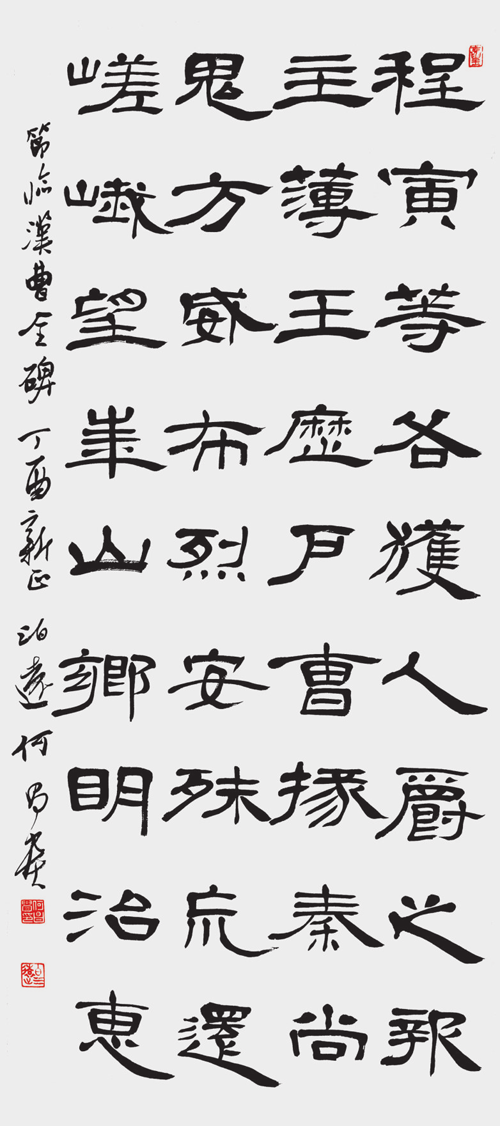 程寅等各獲人爵之報
主薄王歷戶曹掾秦尚
鬼方威布烈安殊荒還
嵯峨望華山鄉明治惠
節臨漢曹全碑丁酉新正泊遠何